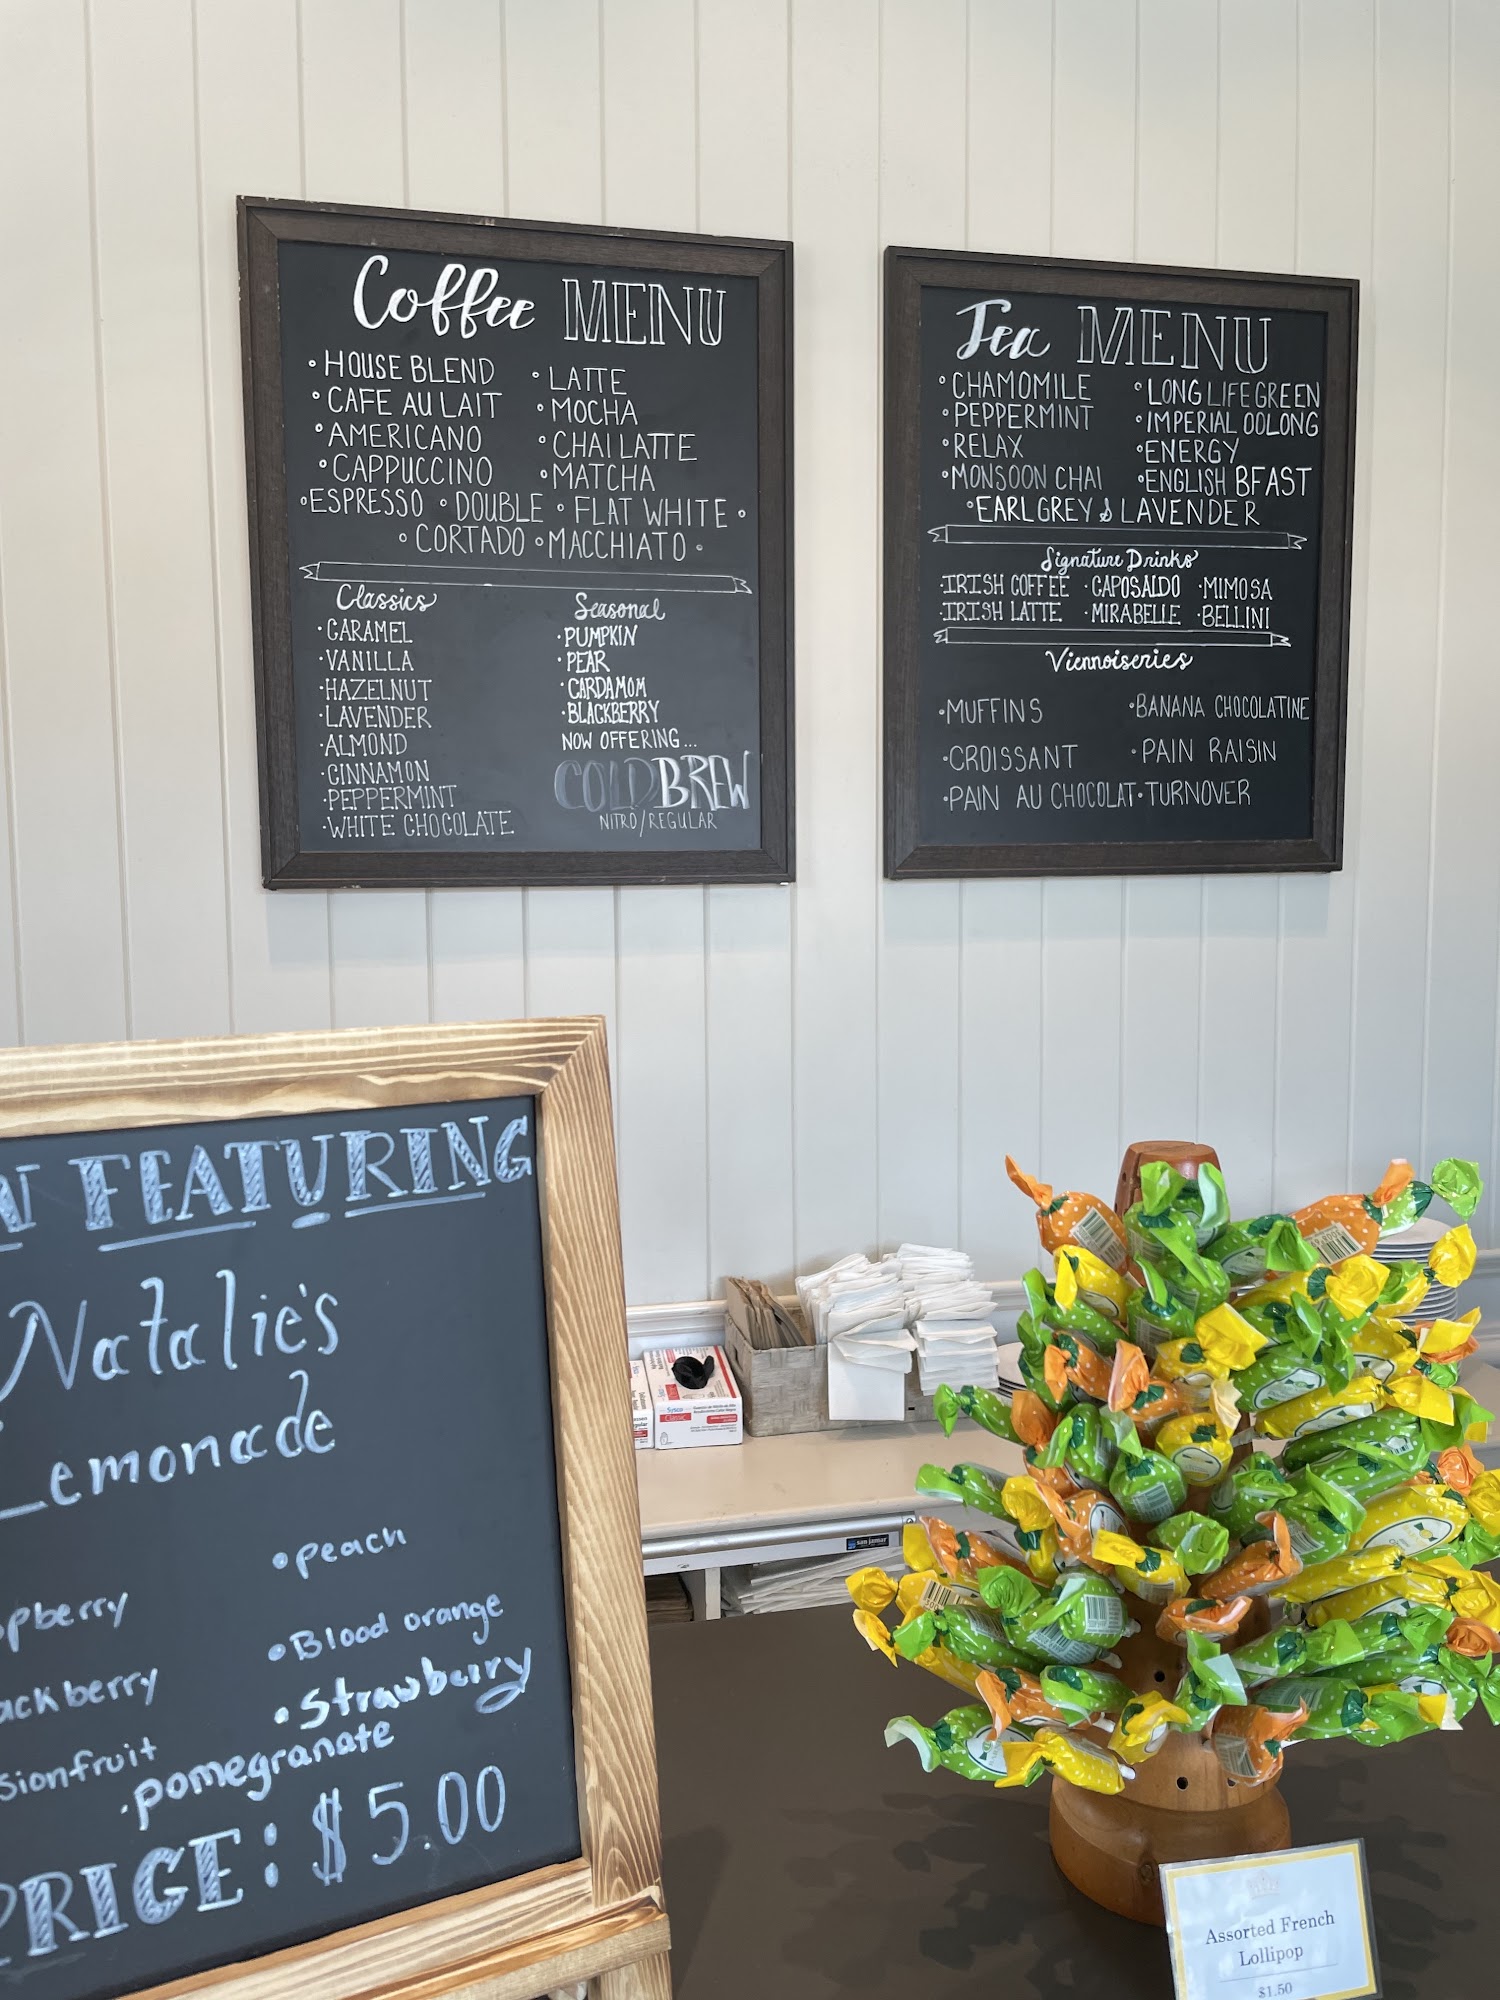 Coffee MENU
• HOUSE BLEND
• CAFE AU LAIT
• AMERICANO
• CAPPUCCINO
• LATTE
• MOCHA
• CHAI LATTE
• MATCHA
• ESPRESSO • DOUBLE • FLAT WHITE •
• CORTADO • MACCHIATO •
Classics
• CARAMEL
• VANILLA
• HAZELNUT
• LAVENDER
• ALMOND
• CINNAMON
• PEPPERMINT
• WHITE CHOCOLATE
Seasonal
• PUMPKIN
• PEAR
• CARDAMOM
• BLACKBERRY
NOW OFFERING...
COLD BREW
NITRO/REGULAR
Tea MENU
• CHAMOMILE
• PEPPERMINT
• RELAX
• MONSOON CHAI
• LONG LIFE GREEN
• IMPERIAL OOLONG
• ENERGY
• ENGLISH BFAST
• EARL GREY & LAVENDER
Signature Drinks
• IRISH COFFEE • CAPOSALDO • MIMOSA
• IRISH LATTE • MIRABELLE • BELLINI
Viennoiseries
• MUFFINS • BANANA CHOCOLATINE
• CROISSANT • PAIN RAISIN
• PAIN AU CHOCOLAT • TURNOVER
FEATURING
Natalie's
Lemonade
pberry
ackberry
sionfruit
• peach
• Blood orange
• Strawberry
• pomegranate
PRICE: $5.00
Sysco
Classic
san jamar
Assorted French
Lollipop
$1.50